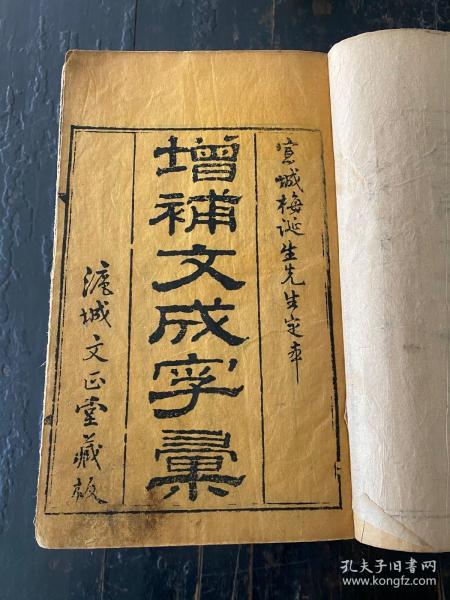 宣城梅誕生先生定本
增補文成字彙
滬城文正堂藏板
孔夫子旧书网
www.kongfz.com